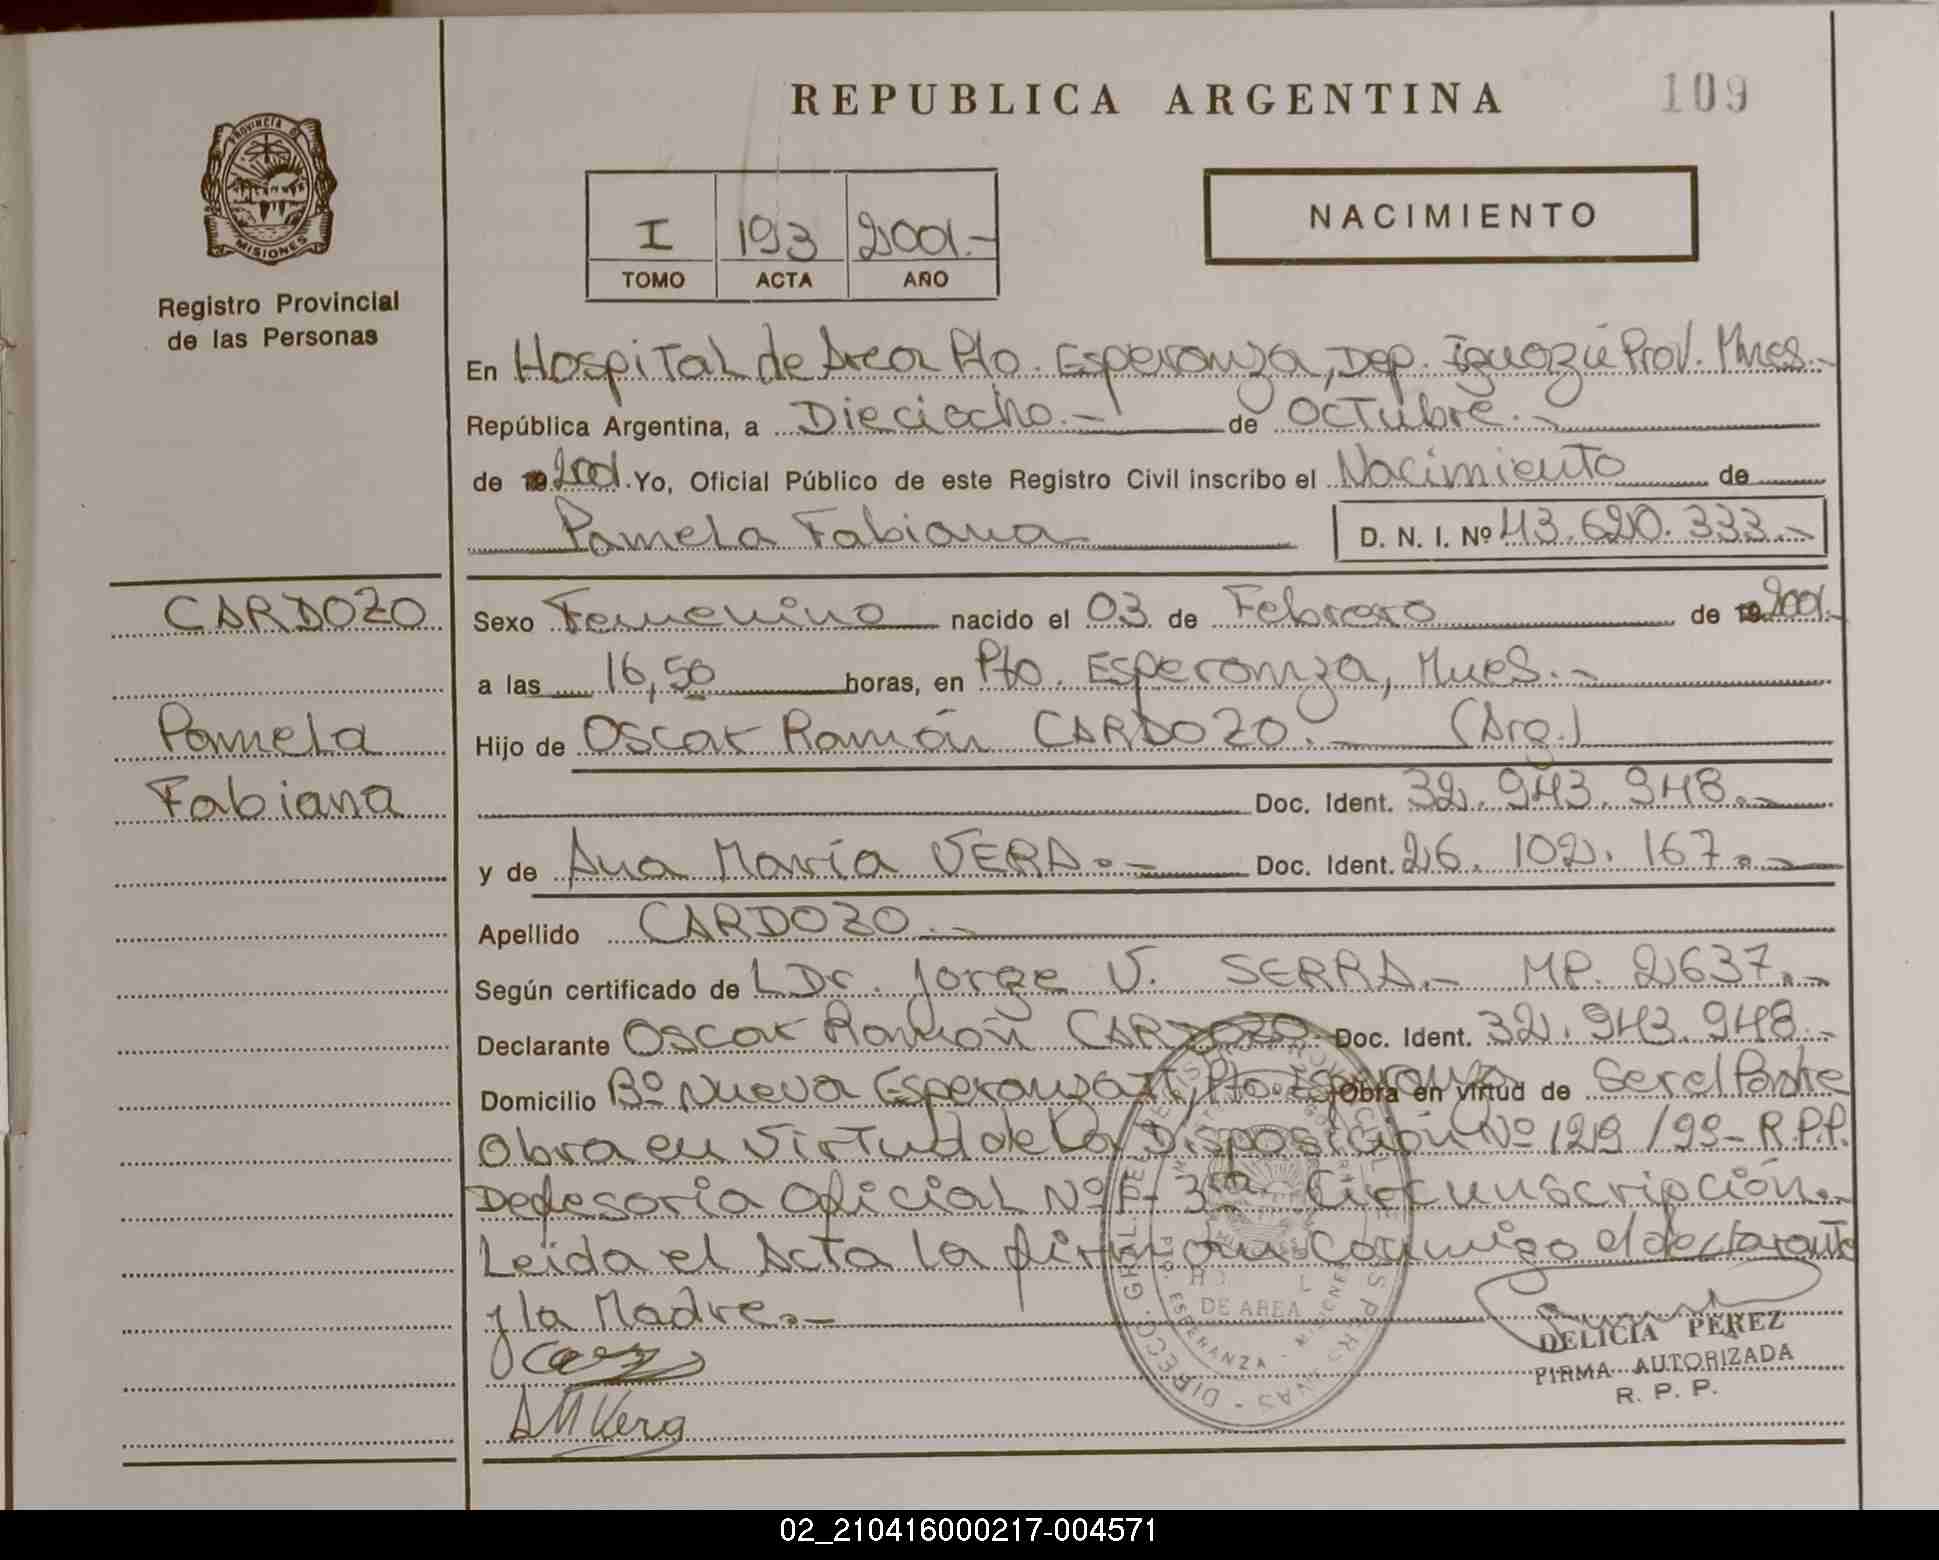 REPUBLICA ARGENTINA
109
PROVINCIA DE
MISIONES
Registro Provincial
de las Personas
I 193 2001.-
TOMO ACTA AÑO
NACIMIENTO
En Hospital de Area Pto. Esperanza, Dep. Iguazú Prov. Mnes.-
República Argentina, a Dieciocho.- de Octubre.-
de 19 2001. Yo, Oficial Público de este Registro Civil inscribo el Nacimiento de
Pamela Fabiana D. N. I. Nº 43.620.333.-
CARDOZO
Pamela
Fabiana
Sexo Femenino nacido el 03 de Febrero de 19 2001.-
a las 16,50 horas, en Pto. Esperanza, Mnes.-
Hijo de Oscar Ramón CARDOZO.- (Arg.)
Doc. Ident. 32.943.948.-
y de Ana María VERA.- Doc. Ident. 26.102.167.-
Apellido CARDOZO.-
Según certificado de L Dr. Jorge V. SERRA.- MP. 2637.-
Declarante Oscar Ramón CARDOZO Doc. Ident. 32.943.948.-
Domicilio Bº Nueva Esperanza II, Pto. Esperanza Obra en virtud de Ser el Padre
Obra en Virtud de la Disposición Nº 129/99- R.P.P.
Defesoria Oficial Nº 1- 3ra. Circunscripción.-
Leida el Acta la firman conmigo el declarante
y la Madre.-
AMVera
DELICIA PEREZ
FIRMA AUTORIZADA
R. P. P.
DE AREA
PTO. ESPERANZA - MISIONES
02_210416000217-004571